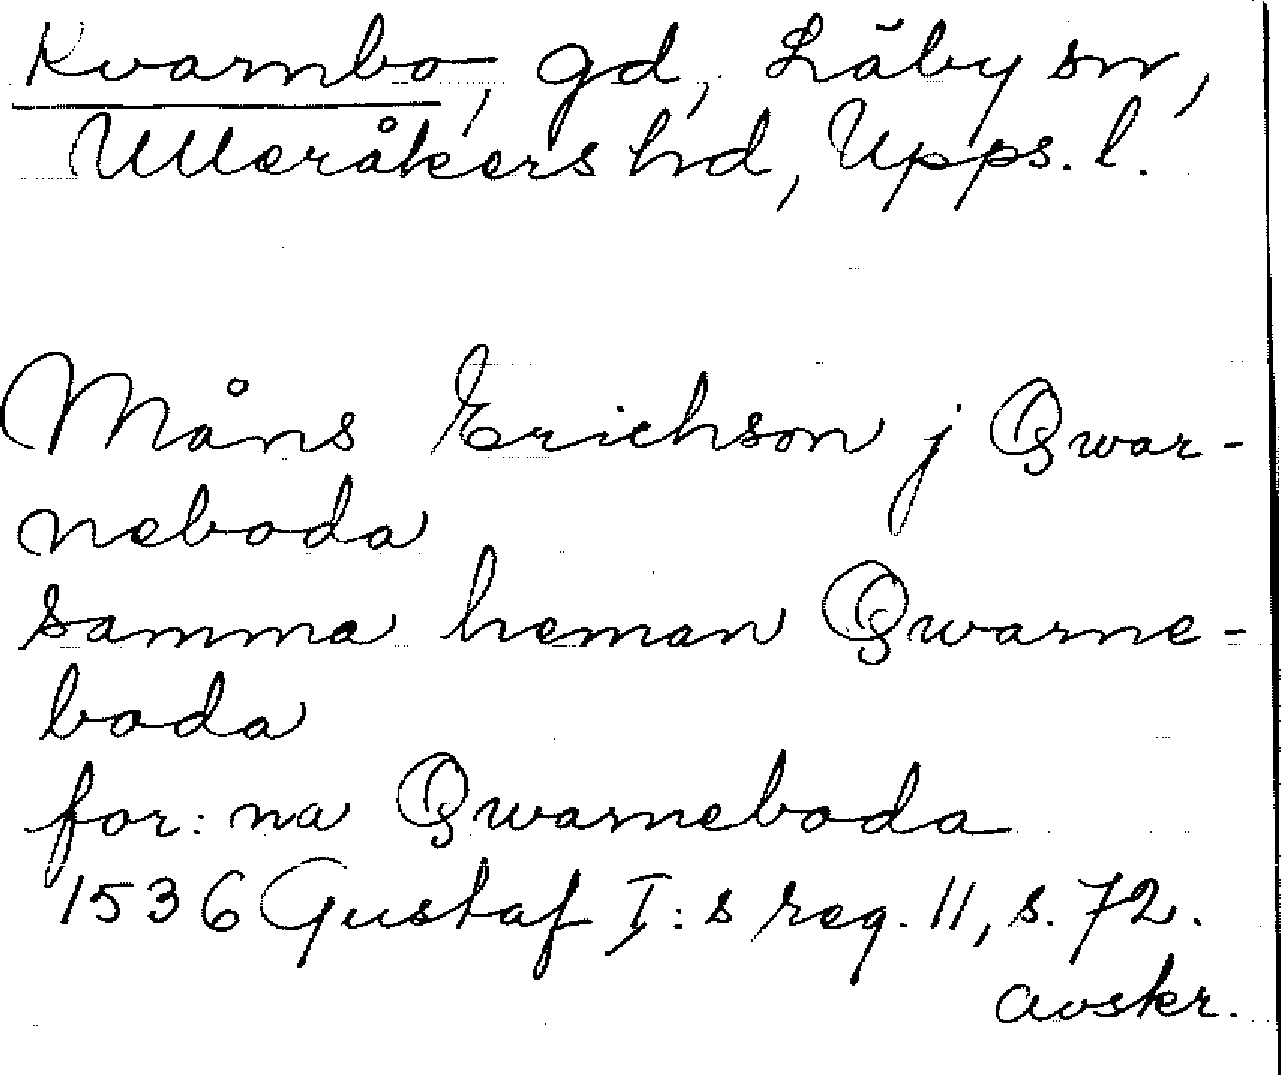 Kvarnbo, gd, Läby sn,
Ulleråkers hd, Upps. l.
Måns Erichson j Qwar-
neboda
samma heman Qwarne-
boda
for: na Qwarneboda
1536 Gustaf I: s reg. 11, s. 72.
avskr.